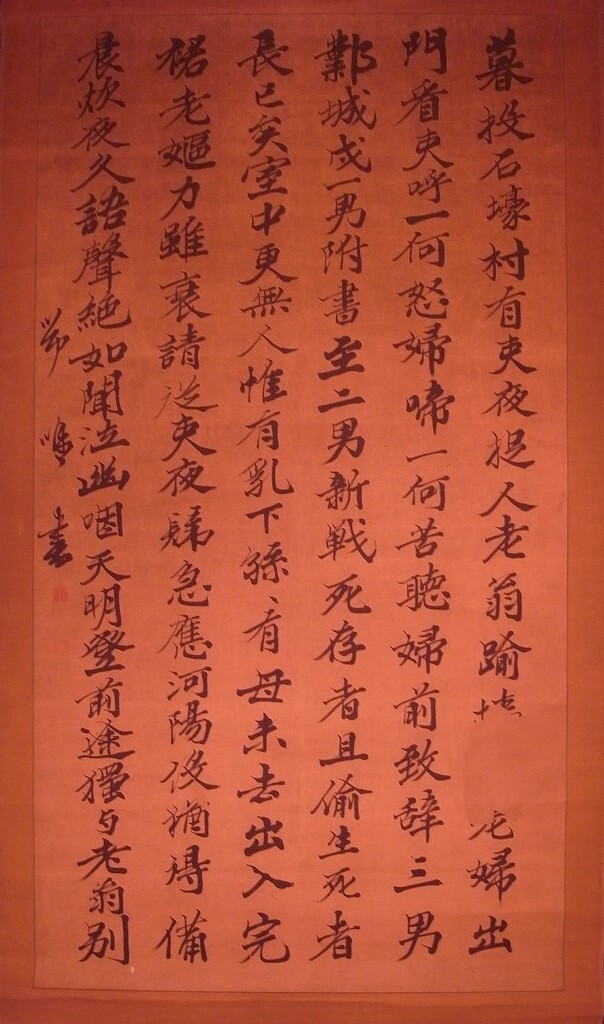 暮投石壕村有吏夜捉人老翁踰 婦出
門看吏呼一何怒婦啼一何苦聽婦前致辞三男
鄴城戍一男附書至二男新戦死存者且偷生死者
長已矣室中更無人惟有乳下孫〻有母未去出入完
裙老嫗力雖衰請从吏夜歸急應河陽役猶得備
晨炊夜久語聲絶如聞泣幽咽天明登前途獨与老翁别
書